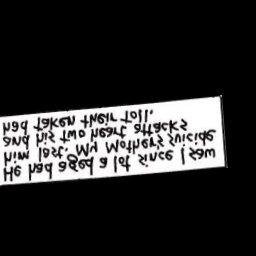 He had aged a lot since I saw
him last. My Mother's suicide
and his two heart attacks
had taken their toll.